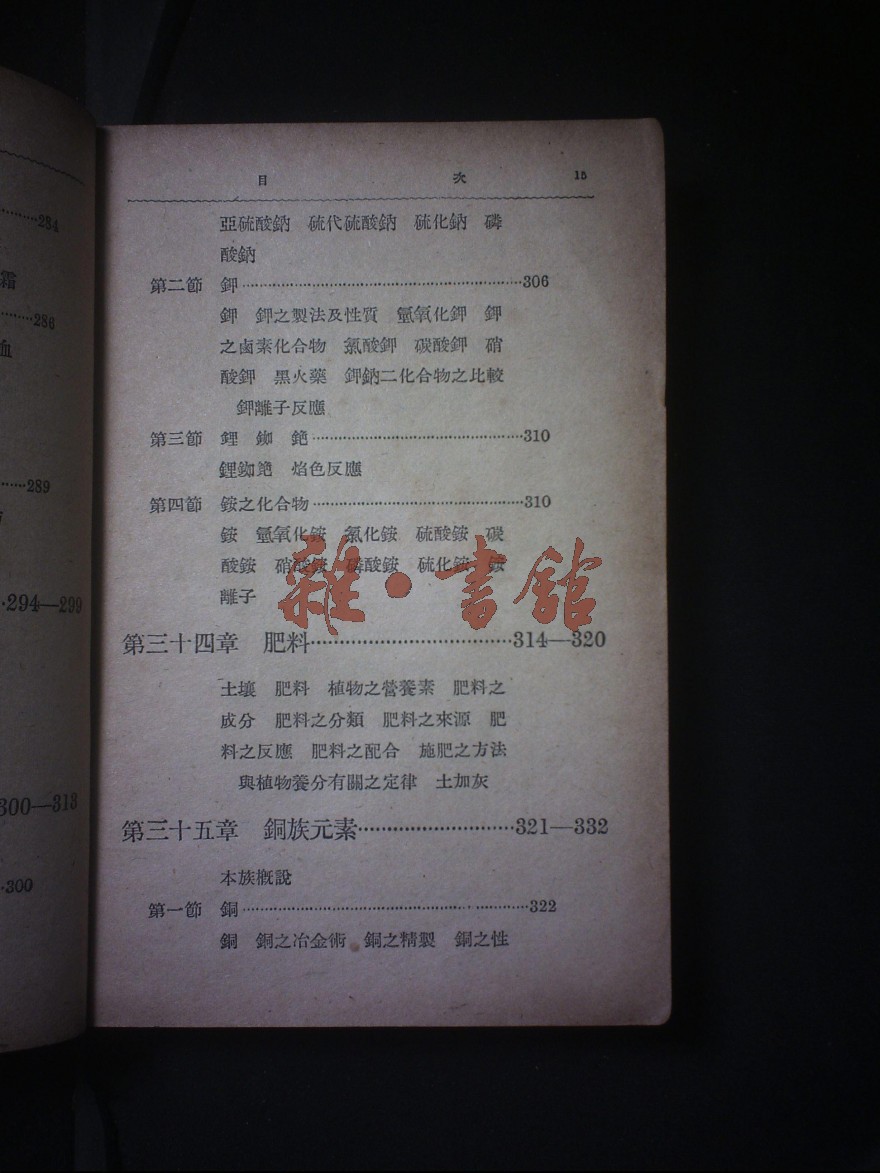 284
霜
286
血
289
294—299
300—313
300
目 次 15
亞硫酸鈉 硫代硫酸鈉 硫化鈉 磷
酸鈉
第二節 鉀……306
鉀 鉀之製法及性質 氫氧化鉀 鉀
之鹵素化合物 氯酸鉀 碳酸鉀 硝
酸鉀 黑火藥 鉀鈉二化合物之比較
鉀離子反應
第三節 鋰 銣 銫……310
鋰銣銫 焰色反應
第四節 銨之化合物……310
銨 氫氧化銨 氯化銨 硫酸銨 碳
酸銨 硝酸銨 磷酸銨 硫化銨 銨
離子
雜·書館
第三十四章 肥料……314—320
土壤 肥料 植物之營養素 肥料之
成分 肥料之分類 肥料之來源 肥
料之反應 肥料之配合 施肥之方法
與植物養分有關之定律 土加灰
第三十五章 銅族元素……321—332
本族概說
第一節 銅……322
銅 銅之冶金術 銅之精製 銅之性